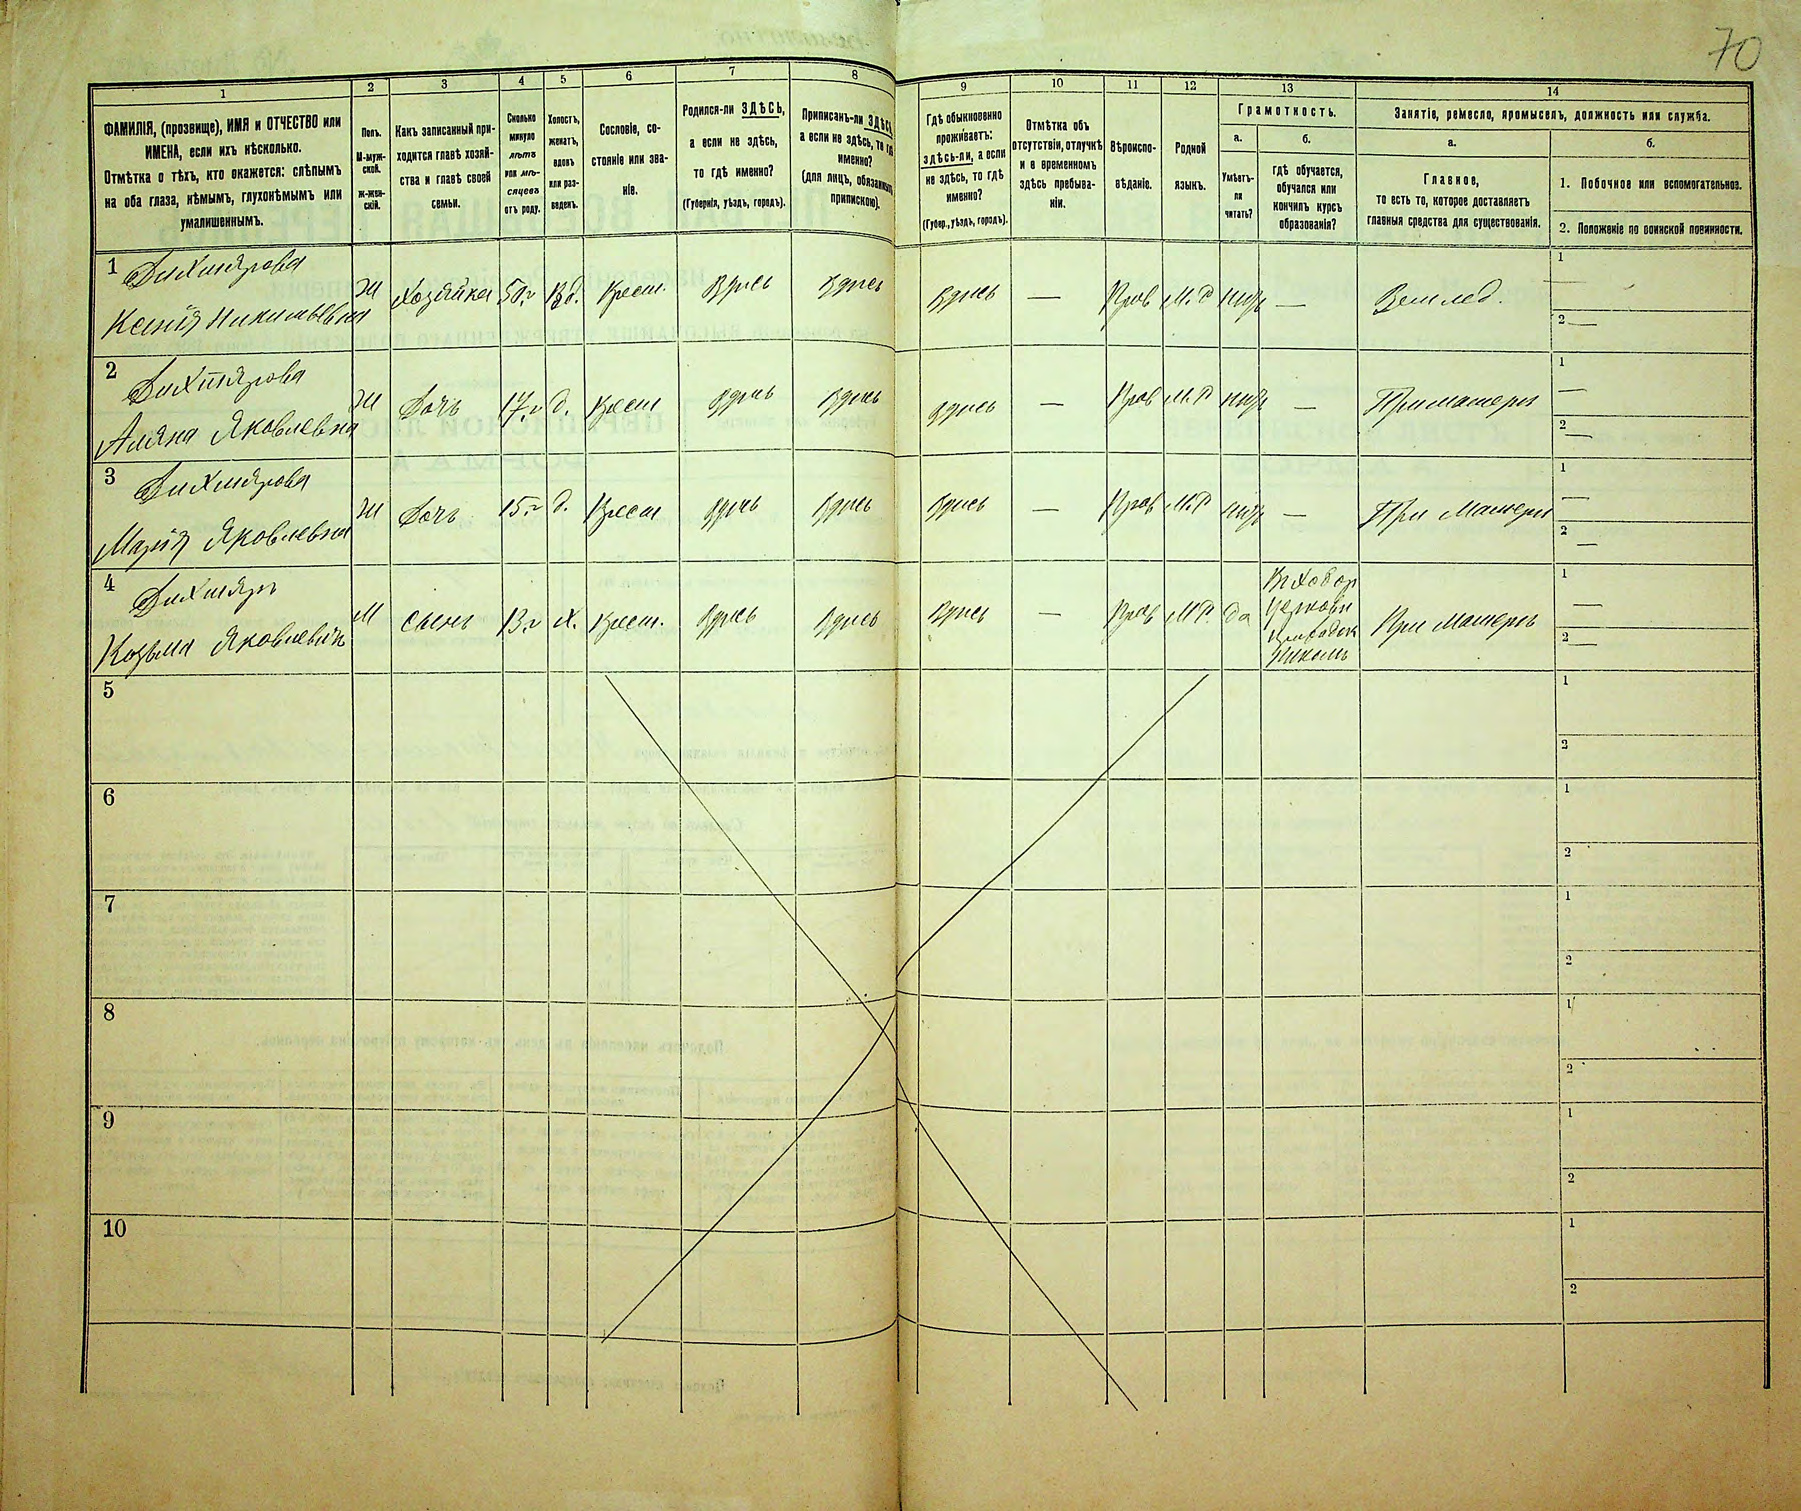 70
1 2 3 4 5 6 7 8 9 10 11 12 13 14
ФАМИЛІЯ, (прозвище), ИМЯ и ОТЧЕСТВО или
ИМЕНА, если ихъ нѣсколько.
Отмѣтка о тѣхъ, кто окажется: слѣпымъ
на оба глаза, нѣмымъ, глухонѣмымъ или
умалишеннымъ.
Полъ.
М-муж-
ской.
ж-жен-
скій.
Какъ записанный при-
ходится главѣ хозяй-
ства и главѣ своей
семьи.
Сколько
минуло
лѣтъ
или мѣ-
сяцевъ
отъ роду.
Холостъ,
женатъ,
вдовъ
или раз-
веденъ.
Сословіе, со-
стояніе или зва-
ніе.
Родился-ли ЗДѢСЬ,
а если не здѣсь,
то гдѣ именно?
(Губернія, уѣздъ, городъ).
Приписанъ-ли ЗДѢСЬ
а если не здѣсь, то гдѣ
именно?
(для лицъ, обязанныхъ
припискою).
Гдѣ обыкновенно
проживаетъ:
здѣсь-ли, а если
не здѣсь, то гдѣ
именно?
(Губер., уѣздъ, городъ).
Отмѣтка объ
отсутствіи, отлучкѣ
и о временномъ
здѣсь пребыва-
ніи.
Вѣроиспо-
вѣданіе.
Родной
языкъ.
Грамотность.
а.
Умѣетъ-
ли
читать?
б.
Гдѣ обучается,
обучался или
кончилъ курсъ
образованія?
Занятіе, ремесло, промыселъ, должность или служба.
а.
Главное,
то есть то, которое доставляетъ
главныя средства для существованія.
б.
1. Побочное или вспомогательное.
2. Положеніе по воинской повинности.
1
Ксенія Никитьевна
Ж Хозяйка 50 г Вд. Крест. Здѣсь Здѣсь Здѣсь — Прав М.Р. — Землед.
1
2 —
2
Яковлевна
Ж Дочь 17 г д. Крест Здѣсь Здѣсь Здѣсь — Прав М.Р. — При матери
1 —
2 —
3
Марія Яковлевна
Ж Дочь 15 г д. Крест Здѣсь Здѣсь Здѣсь — Прав М.Р. — При Матери
1 —
2 —
4
Козьма Яковлевичъ
М Сынъ 13 г х. Крест. Здѣсь Здѣсь Здѣсь — Прав М.Р. да
Церковн
При Матери
1 —
2 —
5
1
2
6
1
2
7
1
2
8
1
2
9
1
2
10
1
2